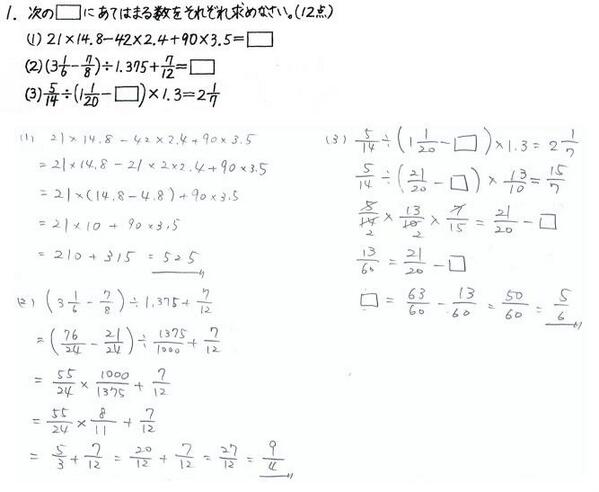 1. 次の□にあてはまる数をそれぞれ求めなさい。(12点)
(1) 21×14.8−42×2.4+90×3.5=□
(2) (3 1/6 − 7/8)÷1.375+7/12=□
(3) 5/14÷(1 1/20−□)×1.3=2 1/7
(1) 21×14.8−42×2.4+90×3.5
=21×14.8−21×2×2.4+90×3.5
=21×(14.8−4.8)+90×3.5
=21×10+90×3.5
=210+315=525
(2) (3 1/6 − 7/8)÷1.375+7/12
=(76/24 − 21/24)÷1375/1000+7/12
=55/24×1000/1375+7/12
=55/24×8/11+7/12
=5/3+7/12=20/12+7/12=27/12=9/4
(3) 5/14÷(1 1/20−□)×1.3=2 1/7
5/14÷(21/20−□)×13/10=15/7
5/14×13/10×7/15=21/20−□
2 2
13/60=21/20−□
□=63/60−13/60=50/60=5/6